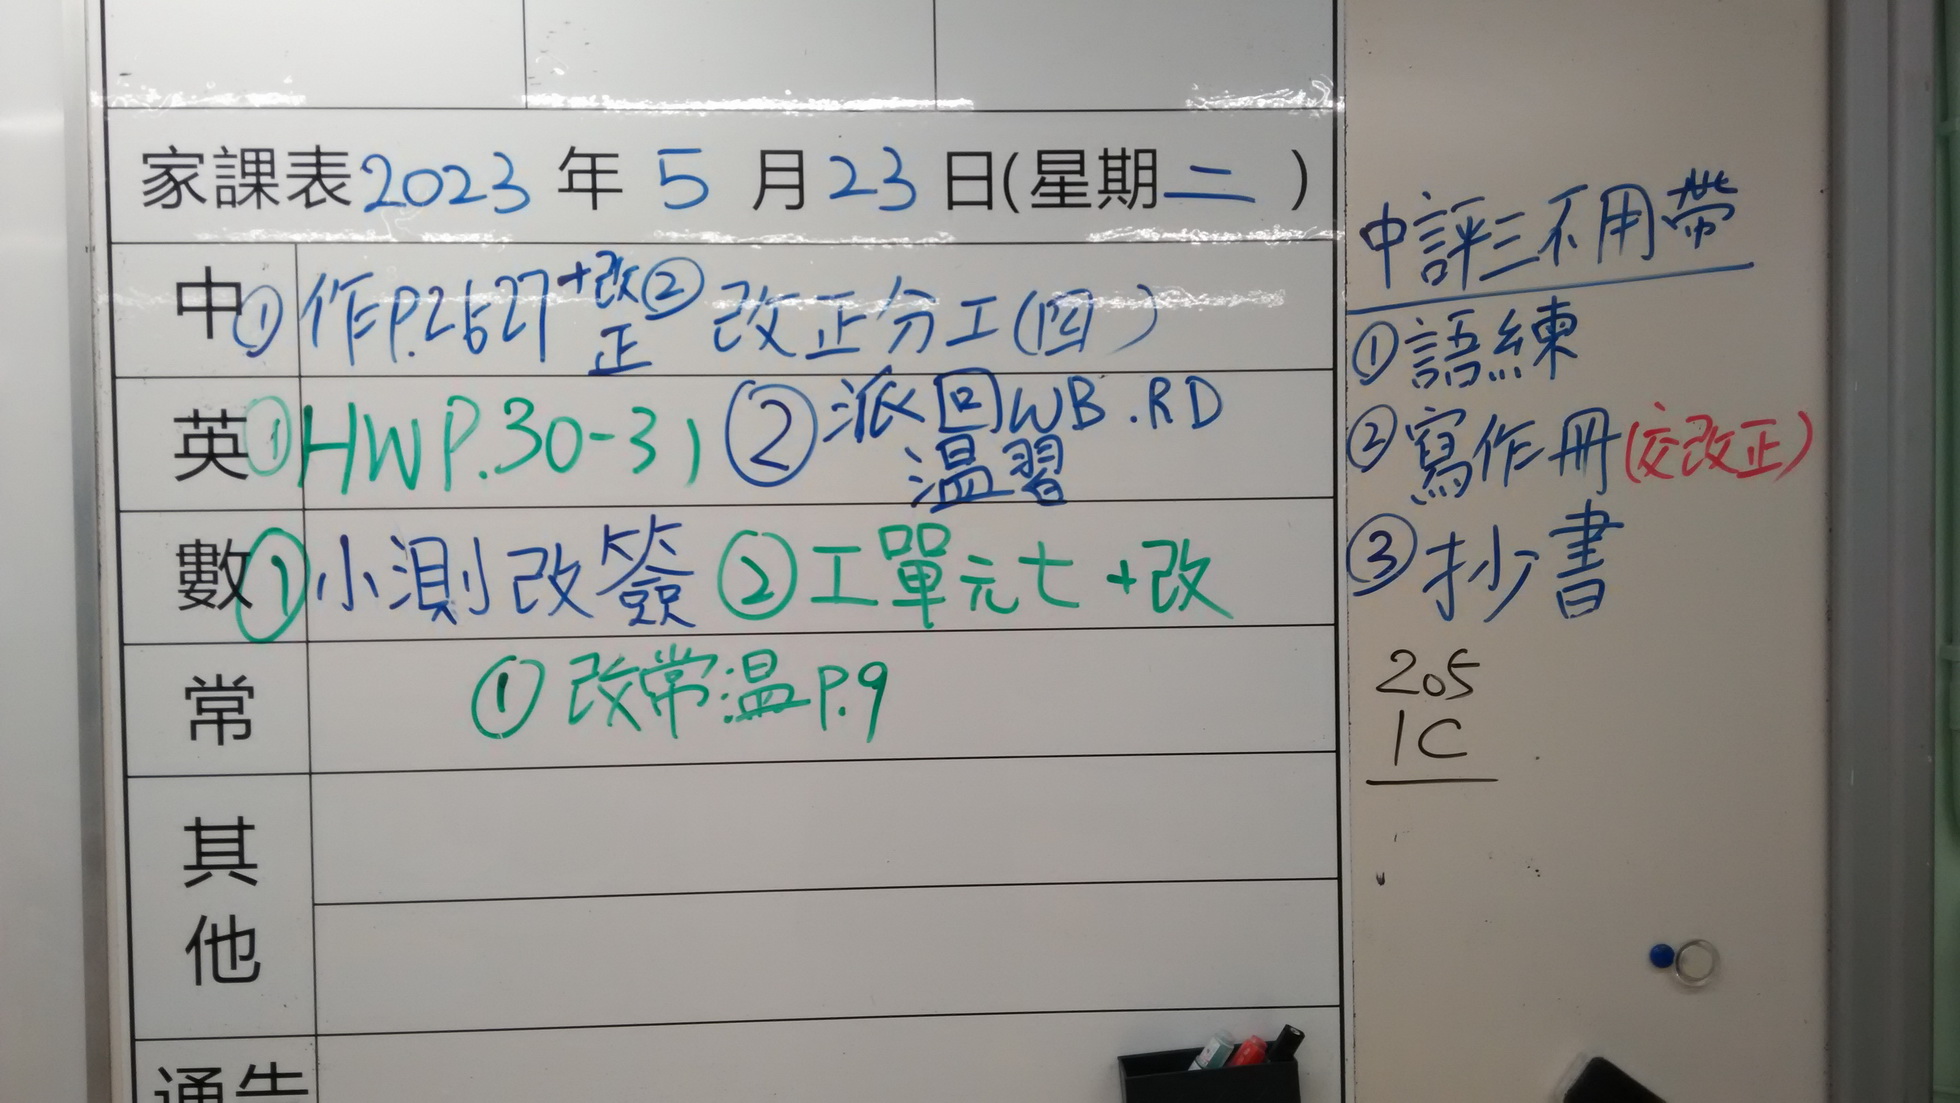 家課表2023年5月23日(星期二)
中 ①作P.26 27+改正 ②改正分工(四)
英 ①HW P.30-31 ②派回WB.RD
温習
數 ①小測改簽 ②工單元七+改
常 ①改常温P.9
其他
通告
中評三不用帶
①語練
②寫作冊(交改正)
③抄書
205
1C